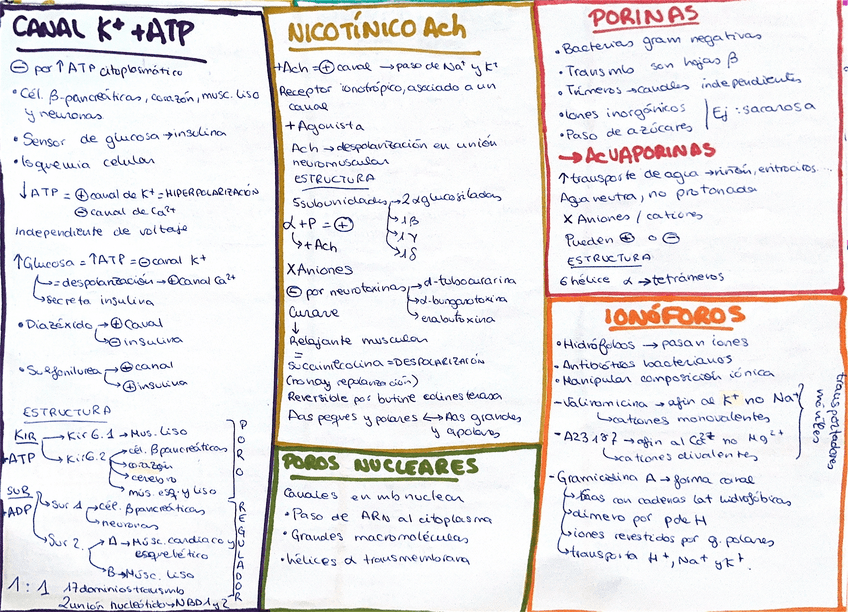 CANAL K⁺ + ATP
⊖ por ↑ATP citoplasmático
• Cél. β-pancreáticas, corazón, musc. liso
y neuronas
• Sensor de glucosa → insulina
• Isquemia celular
↓ATP = ⊕ canal de K⁺ = HIPERPOLARIZACIÓN
⊖ canal de Ca²⁺
Independiente de voltaje
↑Glucosa = ↑ATP = ⊖ canal K⁺
↳ = despolarización → ⊕ canal Ca²⁺
↳ secreta insulina
• Diazóxido → ⊕ Canal
↳ ⊖ insulina
• Sulfonilurea → ⊖ canal
↳ ⊕ insulina
ESTRUCTURA
KIR → Kir 6.1 → Mus. liso
+ATP → Kir 6.2 → cél. β pancreáticas
→ corazón
→ cerebro
→ mús. esq. y liso
PORO
SUR → Sur 1 → Cél. β pancreáticas
+ADP → neuronas
Sur 2 → A → Músc. cardiaco y
esquelético
→ B → Músc. liso
REGULADOR
1:1 17 dominios transmb
2 unión nucleótido → NBD 1 y 2
NICOTÍNICO Ach
+Ach = ⊕ canal → paso de Na⁺ y K⁺
Receptor ionotrópico, asociado a un
canal
+ Agonista
Ach → despolarización en unión
neuromuscular
ESTRUCTURA
5 subunidades → 2 α glucosiladas
→ 1 β
→ 1 γ
→ 1 δ
α + P = ⊕
↳ + Ach
X Aniones
⊖ por neurotoxinas → d-tubocurarina
→ α-bungarotoxina
→ erabutoxina
Curare
↓
Relajante muscular
=
Succinilcolina = DESPOLARIZACIÓN
(no hay repolarización)
Reversible por butiril colinesterasa
Aas peques y polares ↔ Aas grandes
y apolares
POROS NUCLEARES
Canales en mb nuclear
• Paso de ARN al citoplasma
• Grandes macromoléculas
• hélices α transmembrana
PORINAS
• Bacterias gram negativas
• Transmb son hojas β
• Trímeros → canales independientes
• Iones inorgánicos
• Paso de azúcares | Ej: sacarosa
→ ACUAPORINAS
↑ transporte de agua → riñón, eritrocitos...
Agua neutra, no protonada
X Aniones / cationes
Pueden ⊕ o ⊖
ESTRUCTURA
6 hélice α → tetrámeros
IONÓFOROS
• Hidrófobos → pasan iones
• Antibióticos bacterianos
• Manipular composición iónica
- Valinomicina → afin al K⁺ no Na⁺
↳ cationes monovalentes
- A23187 → afin al Ca²⁺ no Mg²⁺
↳ cationes divalentes
transportadores móviles
- Gramicidina A → forma canal
↳ Aas con cadenas lat hidrofóbicas
↳ dímero por pde H
↳ iones revestidos por g. polares
↳ transporta H⁺, Na⁺ y K⁺.